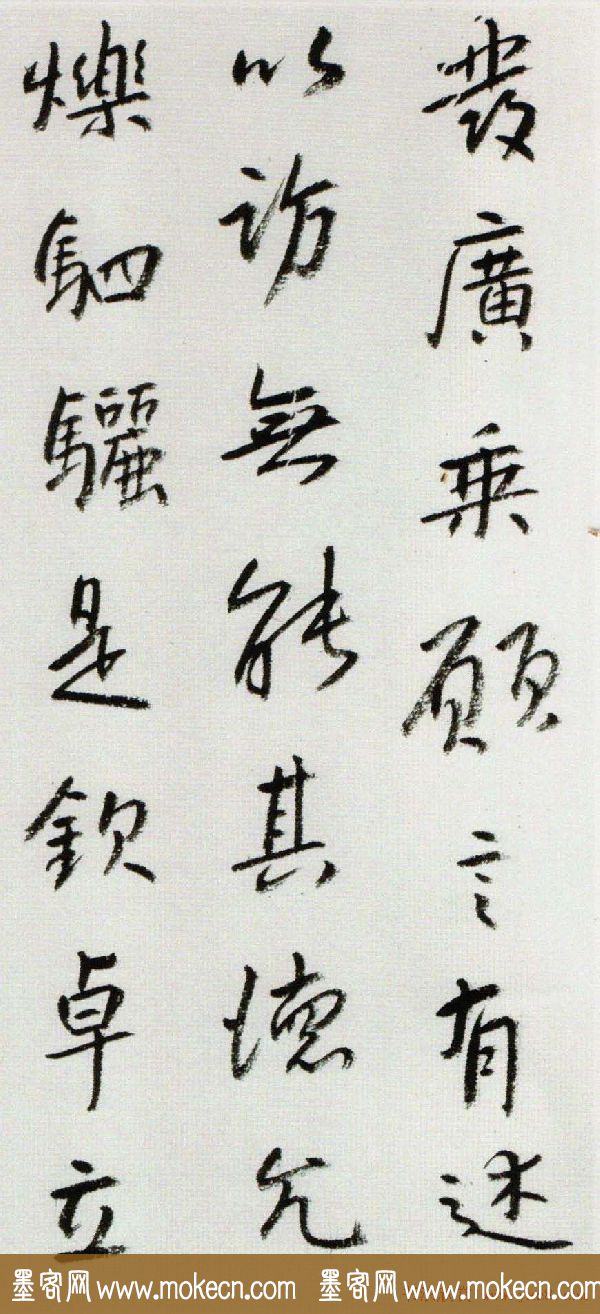 發廣乘願言有述
以訪無能其德允
爍駟驪是欽卓立
墨客网 www.mokecn.com 墨客网 www.mokecn.com